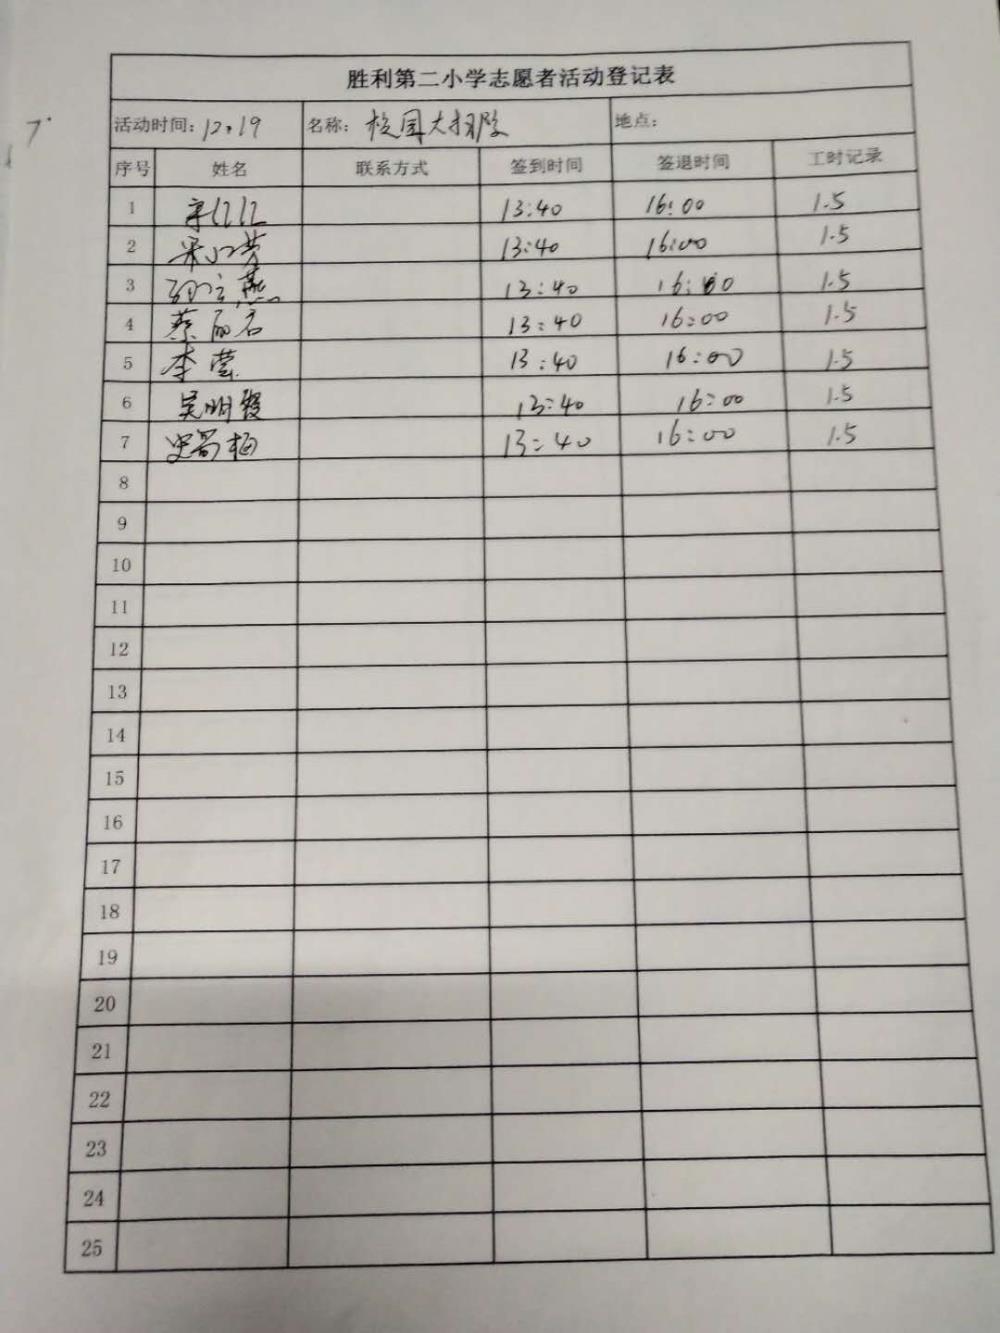 胜利第二小学志愿者活动登记表
活动时间：12.19 名称：校园大扫除 地点：
序号 姓名 联系方式 签到时间 签退时间 工时记录
1 13:40 16:00 1.5
2 13:40 16:00 1.5
3 13:40 16:00 1.5
4 蔡丽君 13:40 16:00 1.5
5 李莹 13:40 16:00 1.5
6 吴明霞 13:40 16:00 1.5
7 13:40 16:00 1.5
8
9
10
11
12
13
14
15
16
17
18
19
20
21
22
23
24
25